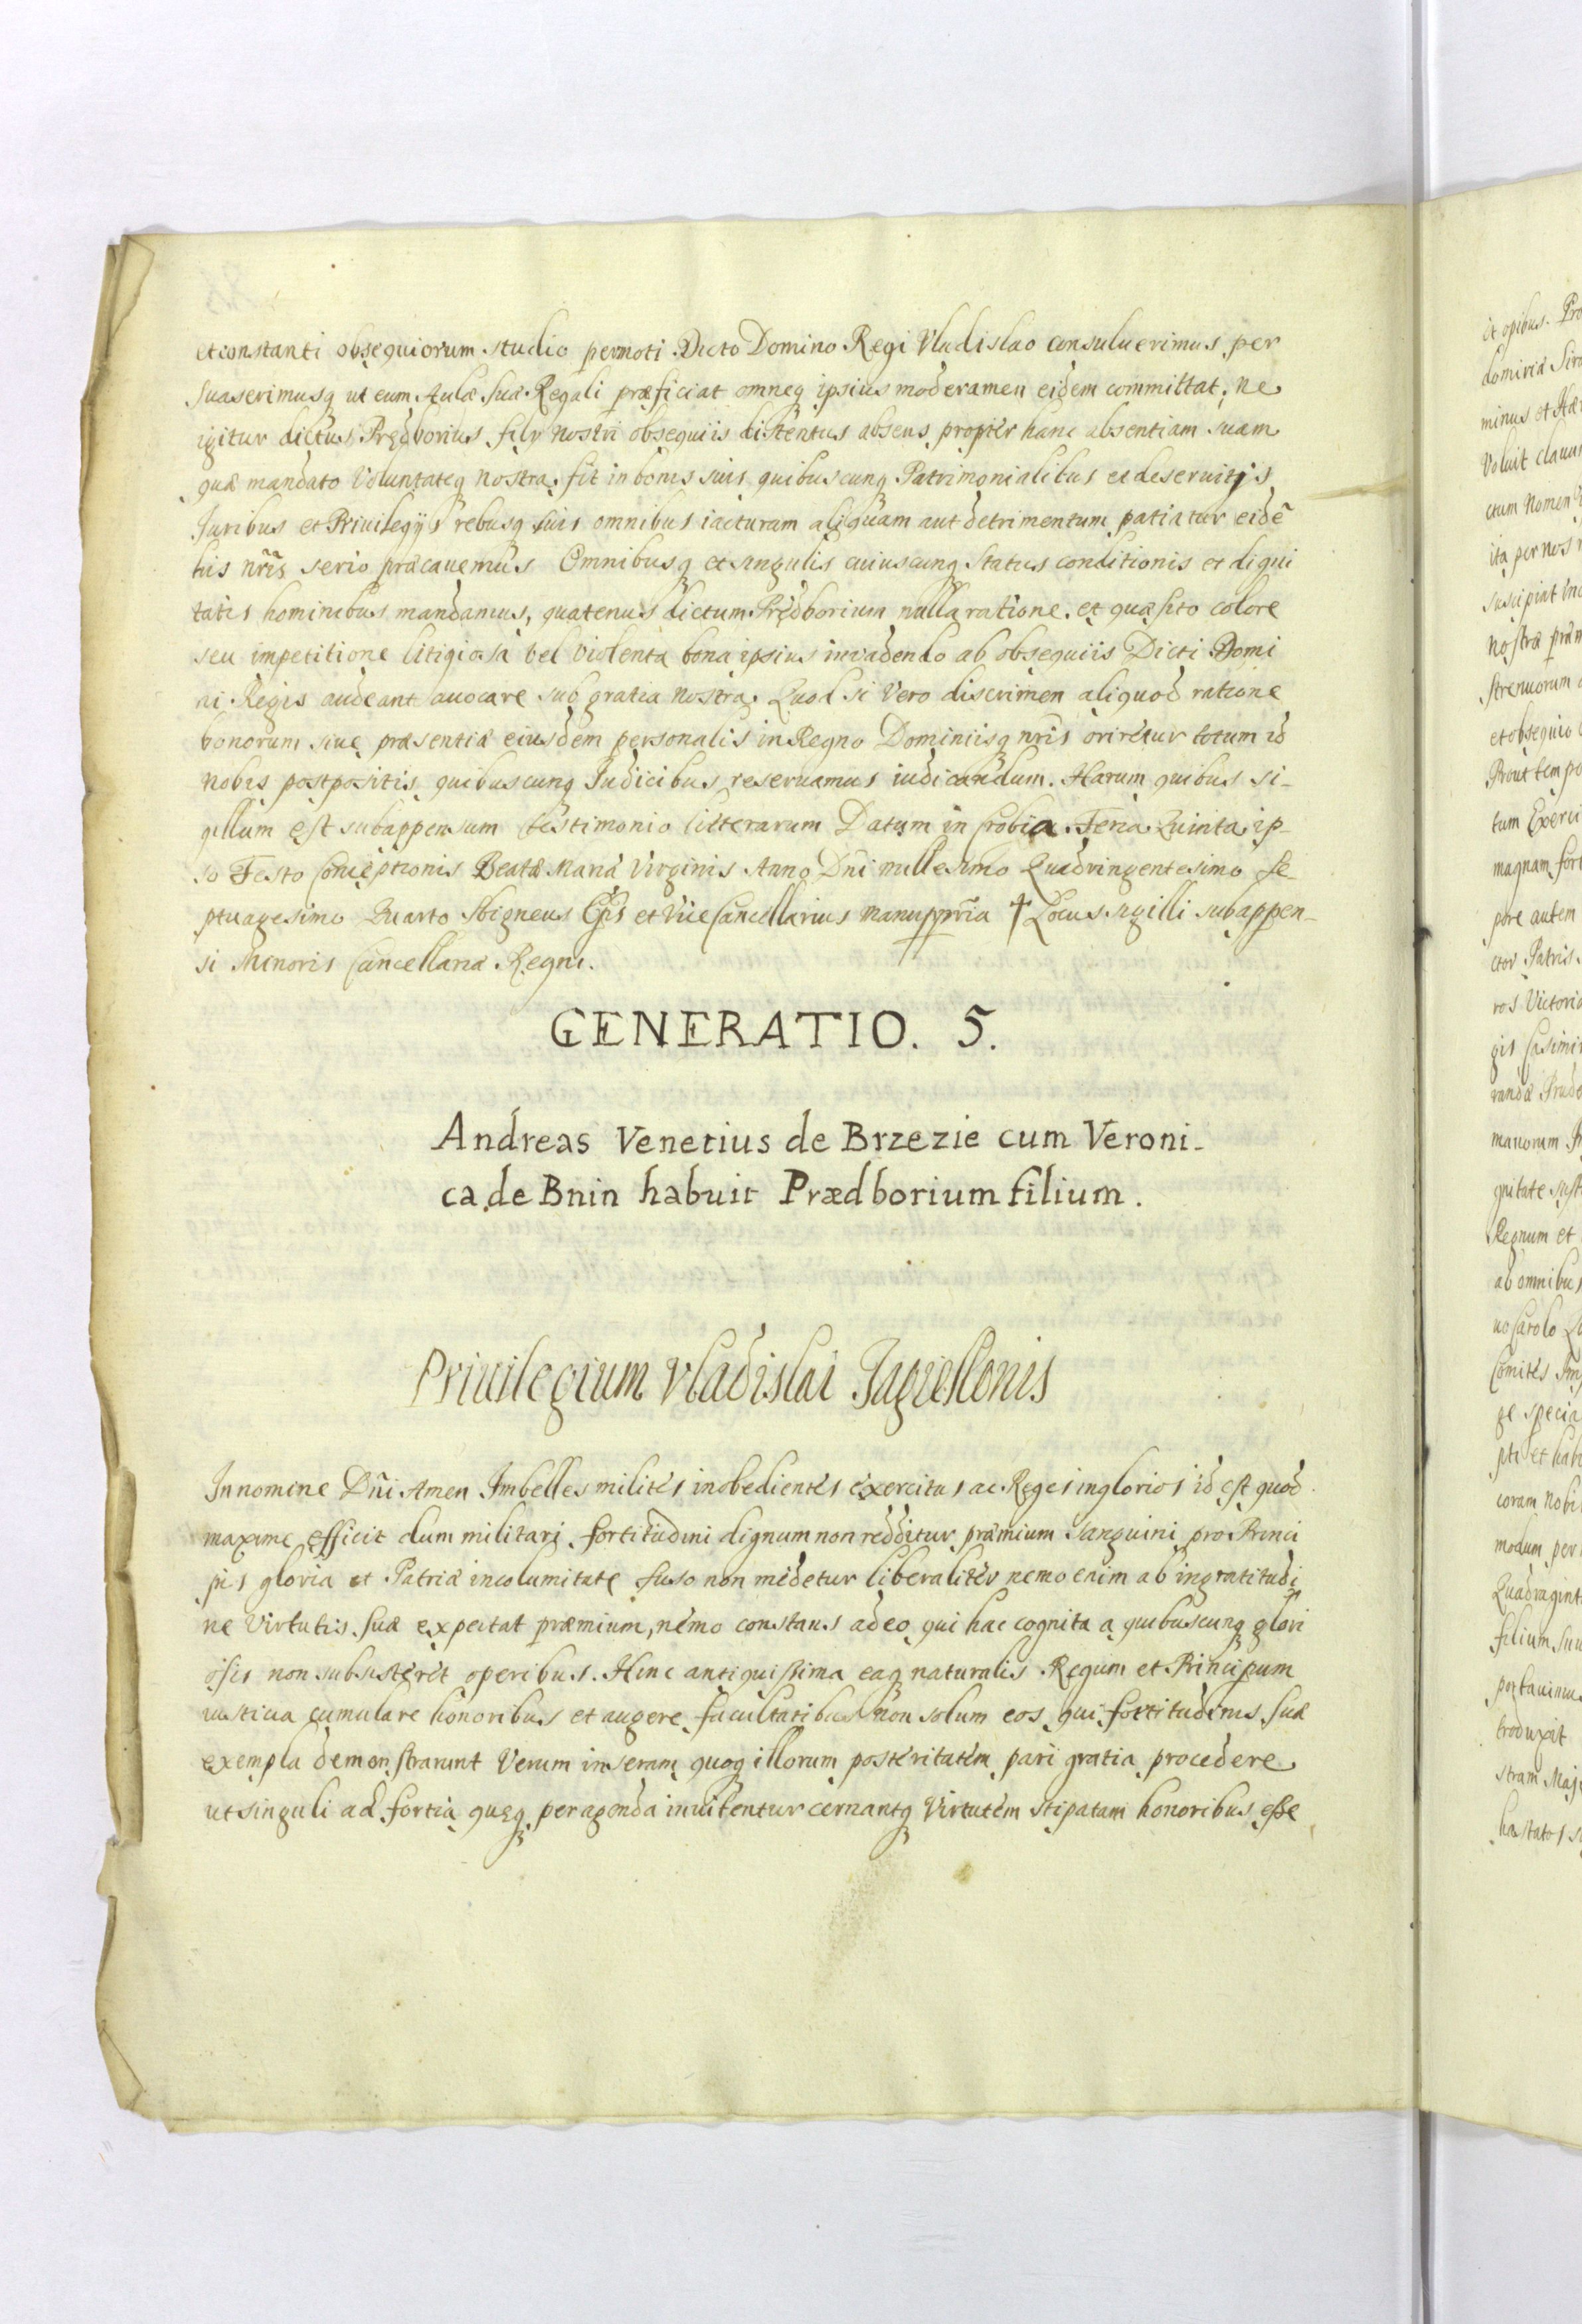 et constanti obsequiorum studio permoti Dicto Domino Regi Vladislao consuluerimus per
suaserimusq ut eum Aulæ suæ Regali præficiat omneq ipsius moderamen eidem committat, ne
igitur dictus Prędborius filÿ nostri obsequiis distentus absens propter hanc absentiam suam
quæ mandato Voluntateq nostra fit in bonis suis quibuscunq Patrimonialibus et deseruitÿs
Juribus et Priuilegÿs rebusq suis omnibus iacturam aliquam aut detrimentum patiatur eidẽ
his nr̃is serio præcauemus Omnibusq et singulis cuiuscunq Status conditionis et digni
tatis hominibus mandamus, quatenus dictum Prędborium nulla ratione et quæsito colore
seu impetitione litigiosa vel violenta bona ipsius invadendo ab obsequiis Dicti Domi
ni Regis audeant auocare sub gratia nostra. Quod si Vero discrimen aliquod ratione
bonorum siue præsentiæ eiusdem personalis in Regno Dominiisq nr̃is oriretur totum id
nobis postpositis quibuscunq Judicibus reseruamus iudicandum. Harum quibus si-
gillum est subappensum testimonio litterarum Datum in Crobia Feria Quinta ip-
so Festo Conceptionis Beatæ Mariæ Virginis Anno Dñi millesimo Quadringentesimo se-
ptuagesimo Quarto Sbigneus et Vice Cancellarius manuppria † Locus sigilli subappen-
si Minoris Cancellariæ Regni.
GENERATIO. 5.
Andreas Venetius de Brzezie cum Veroni-
ca de Bnin habuit Prædborium filium.
Priuilegium Vladislai Jagiellonis
In nomine Dñi Amen Imbelles milites inobedientes exercitus ac Reges inglorios id est quod
maxime efficit dum militari fortitudini dignum non redditur præmium Sanguini pro Princi
pis gloria et Patriæ incolumitate fuso non medetur liberaliter nemo enim ab ingratitudi
ne Virtutis suæ expectat præmium, nemo constans adeo qui hac cognita a quibuscunq glori
osis non subsisteret operibus. Hinc antiquissima eaq naturalis Regum et Principum
iusticia cumulare honoribus et augere facultatibus non solum eos qui fortitudinis suæ
exempla demonstrarunt Verum in seram quoq illorum posteritatem pari gratia procedere
ut singuli ad fortia quęq peragenda inuitentur cernantq Virtutem stipatam honoribus esse
et opibus. Pro
minus et Hæ
Voluit
ctum Nomen
ita per nos
suscipiat
nostræ præm
strenuorum
et obsequio
Prout tempo
tum Exerci
magnam fort
pore autem
ctor Patris
ros Victoria
gis Casimir
gnitate
Regnum et
ab omnibus
no Carolo
Comites Im
ge specia
pti et hab
coram nobi
modum per
Quadragint
filium suu
portauimus
troduxit
stram Maj
hastatos